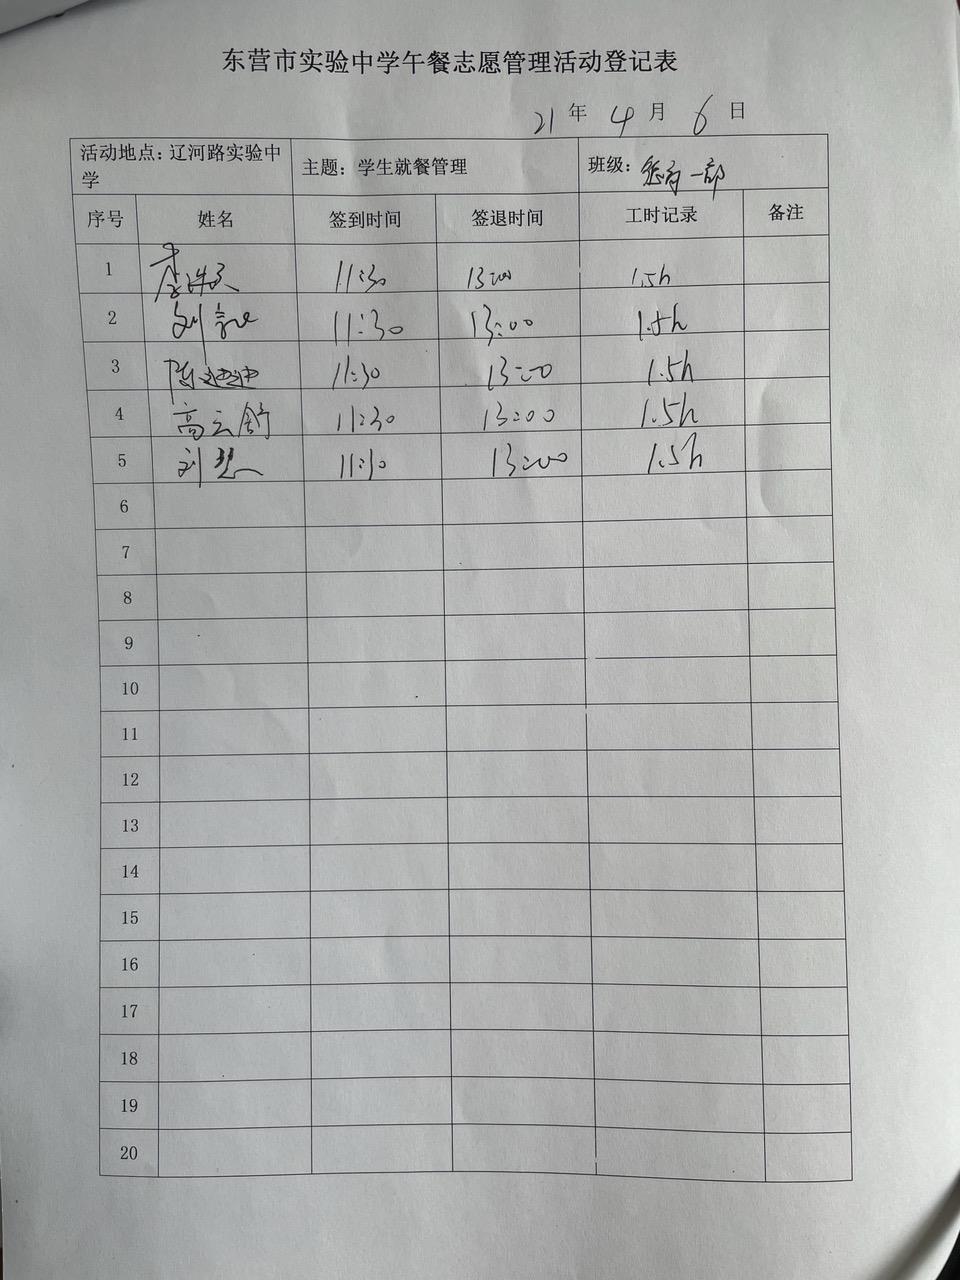 东营市实验中学午餐志愿管理活动登记表
21 年 4 月 6 日
活动地点：辽河路实验中学 主题：学生就餐管理 班级： 一部
序号 姓名 签到时间 签退时间 工时记录 备注
1 李 11:30 13:00 1.5h
2 刘 11:30 13:00 1.5h
3 陈迪迪 11:30 13:00 1.5h
4 高云舒 11:30 13:00 1.5h
5 刘慧 11:30 13:00 1.5h
6
7
8
9
10
11
12
13
14
15
16
17
18
19
20